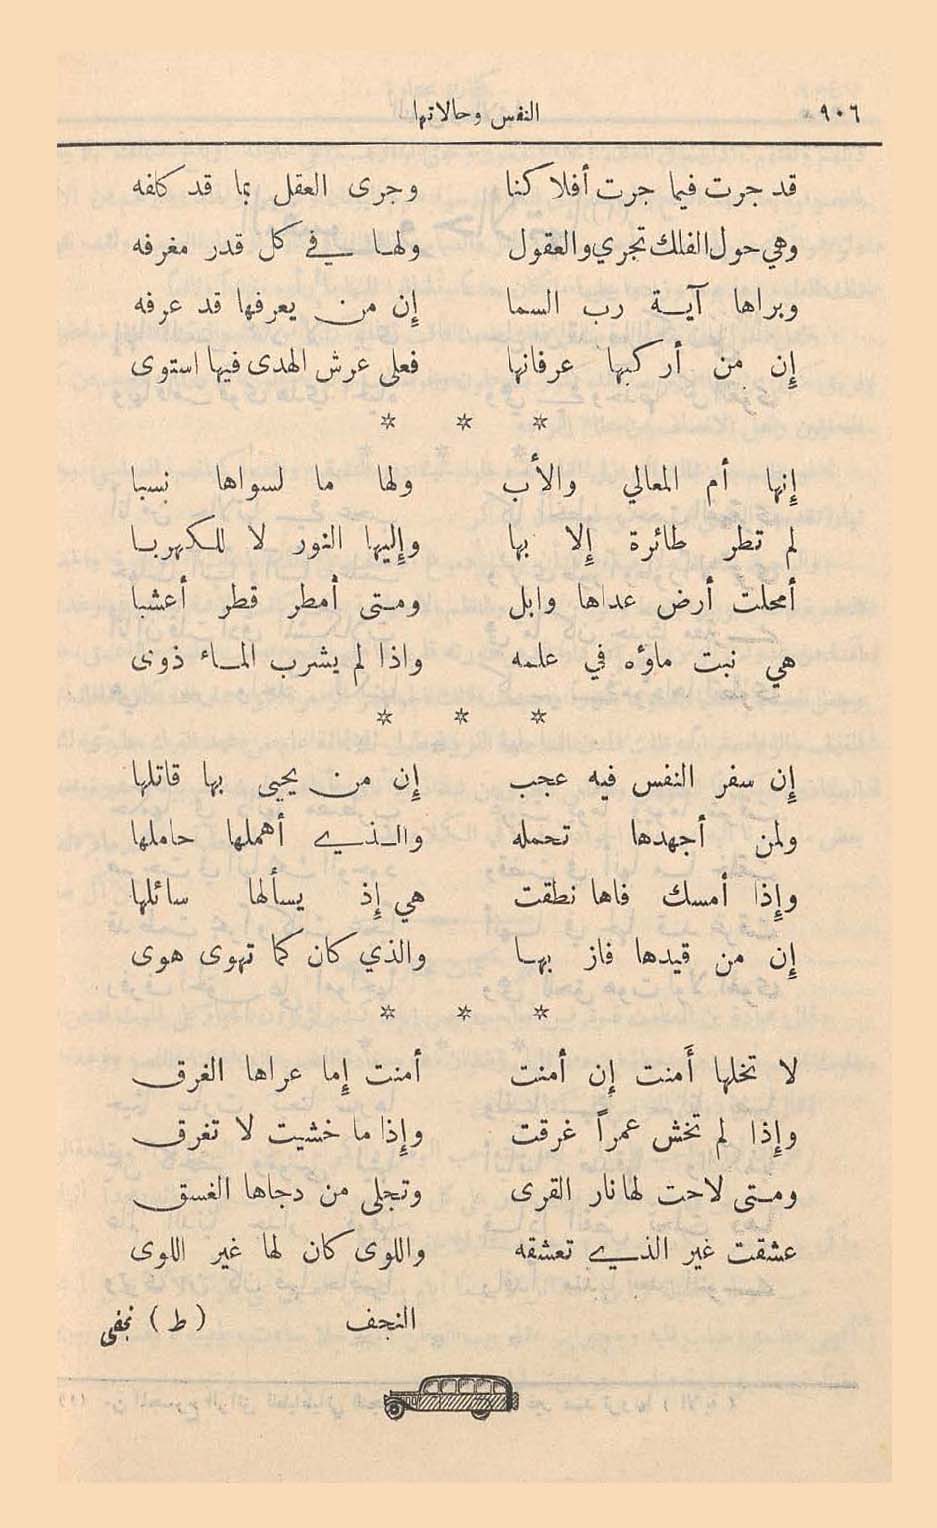 ٩٠٦ النفس وحالاتها
قد جرت فيما جرت أفلاكنا وجرى العقل بما قد كلفه
وهي حول الفلك تجري والعقول ولها في كل قدر مغرفه
وبراها آية رب السما إن من يعرفها قد عرفه
إن من أركبها عرفانها فعلى عرش الهدى فيها استوى
* * *
إنها أم المعالي والأب ولها ما لسواها نسبا
لم تطر طائرة إلا بها وإليها النور لا للكهربا
أمحلت أرض عداها وابل ومتى أمطر قطر أعشبا
هي نبت ماؤه في علمه واذا لم يشرب الماء ذوى
* * *
إن سفر النفس فيه عجب إن من يحيي بها قاتلها
ولمن أجهدها تحمله والذي أهملها حاملها
وإذا أمسك فاها نطقت هي إذ يسألها سائلها
إن من قيدها فاز بها والذي كان كما تهوى هوى
* * *
لا تخلها أَمنت إن أمنت أمنت إما عراها الغرق
وإذا لم تخش عمراً غرقت وإذا ما خشيت لا تغرق
ومتى لاحت لها نار القرى وتجلى من دجاها الغسق
عشقت غير الذي تعشقه واللوى كان لها غير اللوى
النجف ( ط ) نجفي